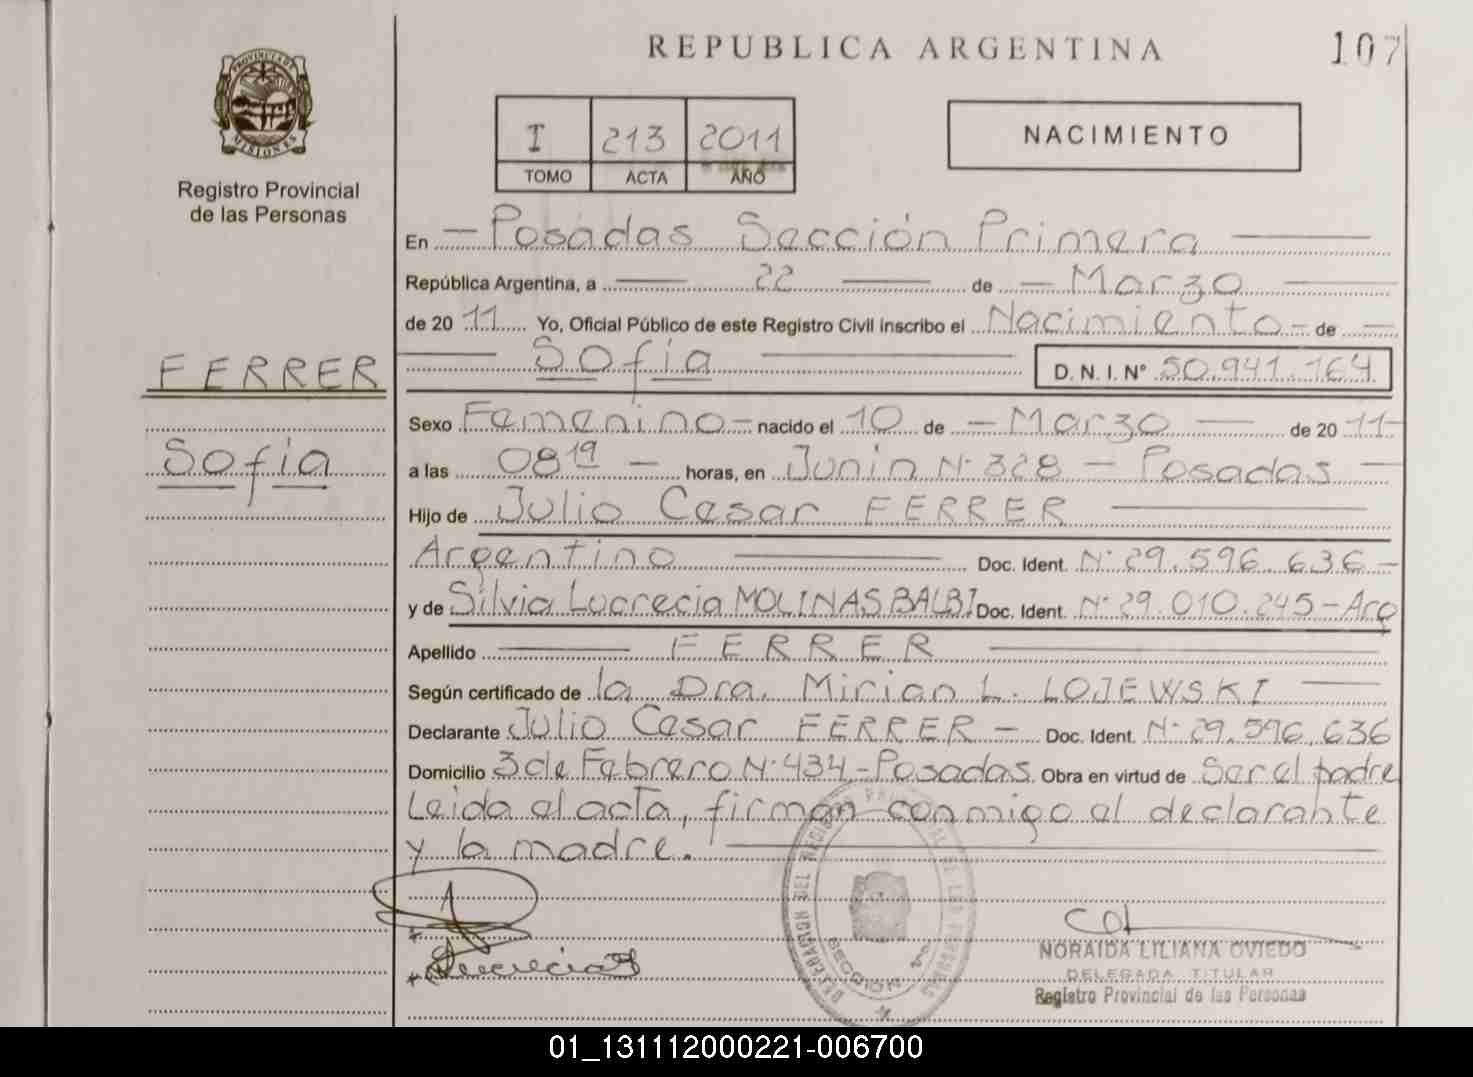 REPUBLICA ARGENTINA
107
PROVINCIA DE MISIONES
Registro Provincial
de las Personas
I 213 2011
TOMO ACTA AÑO
NACIMIENTO
En — Posadas Sección Primera —
República Argentina, a — 22 — de — Marzo —
de 20 11 Yo, Oficial Público de este Registro Civil inscribo el Nacimiento — de —
— Sofía — D. N. I. Nº 50.941.164
FERRER
Sofía
Sexo Femenino — nacido el 10 de — Marzo — de 20 11 —
a las 08 19 — horas, en Junin Nº 328 — Posadas —
Hijo de Julio Cesar FERRER —
Argentino — Doc. Ident. Nº 29.596.636 —
y de Silvia Lucrecia MOLINAS BALBI Doc. Ident. Nº 29.010.245 - Arg
Apellido — FERRER —
Según certificado de la Dra. Mirian L. LOJEWSKI —
Declarante Julio Cesar FERRER — Doc. Ident. Nº 29.596.636
Domicilio 3 de Febrero Nº 434 - Posadas Obra en virtud de Ser el padre
Leida el acta, firman conmigo el declarante
y la madre. —
DELEGACION DEL REGISTRO PROVINCIAL DE LAS PERSONAS
SECCION 1ª
NORAIDA LILIANA OVIEDO
DELEGADA TITULAR
Registro Provincial de las Personas
01_131112000221-006700